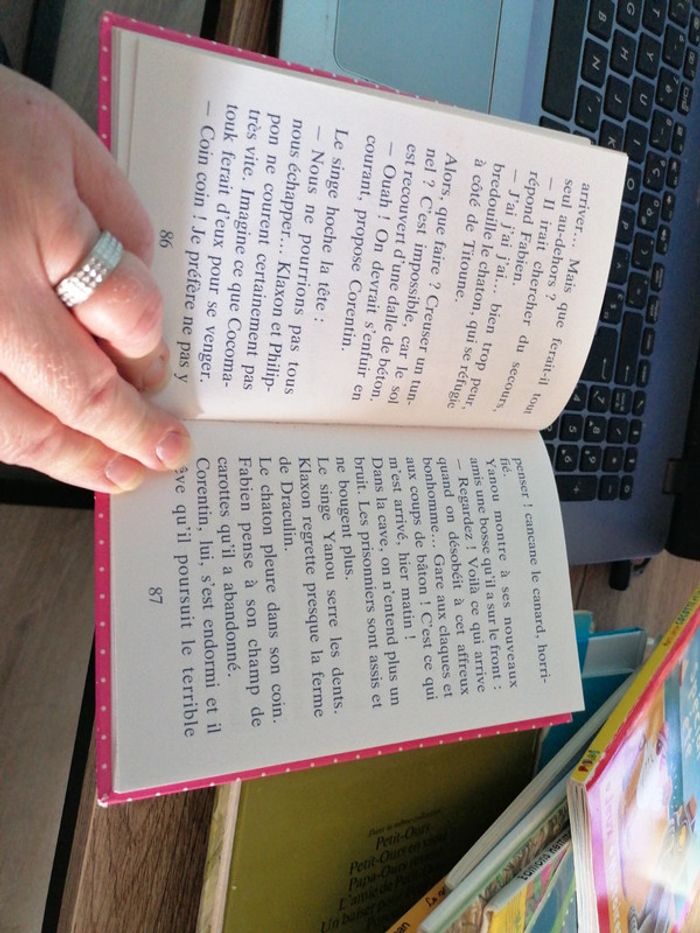 arriver... Mais que ferait-il tout
seul au-dehors ?
— Il irait chercher du secours,
répond Fabien.
— J'ai j'ai j'ai... bien trop peur,
bredouille le chaton, qui se réfugie
à côté de Titoune.
Alors, que faire ? Creuser un tun-
nel ? C'est impossible, car le sol
est recouvert d'une dalle de béton.
— Ouah ! On devrait s'enfuir en
courant, propose Corentin.
Le singe hoche la tête :
— Nous ne pourrions pas tous
nous échapper... Klaxon et Philip-
pon ne courent certainement pas
très vite. Imagine ce que Cocoma-
touk ferait d'eux pour se venger.
— Coin coin ! Je préfère ne pas y
86
penser ! cancane le canard, horri-
fié.
Yanou montre à ses nouveaux
amis une bosse qu'il a sur le front :
— Regardez ! Voilà ce qui arrive
quand on désobéit à cet affreux
bonhomme... Gare aux claques et
aux coups de bâton ! C'est ce qui
m'est arrivé, hier matin !
Dans la cave, on n'entend plus un
bruit. Les prisonniers sont assis et
ne bougent plus.
Le singe Yanou serre les dents.
Klaxon regrette presque la ferme
de Draculin.
Le chaton pleure dans son coin.
Fabien pense à son champ de
carottes qu'il a abandonné.
Corentin, lui, s'est endormi et il
êve qu'il poursuit le terrible
87
Dans la même collection
Petit-Ours
Petit-Ours en
Papa-Ours
L'amie de
Un baiser pour